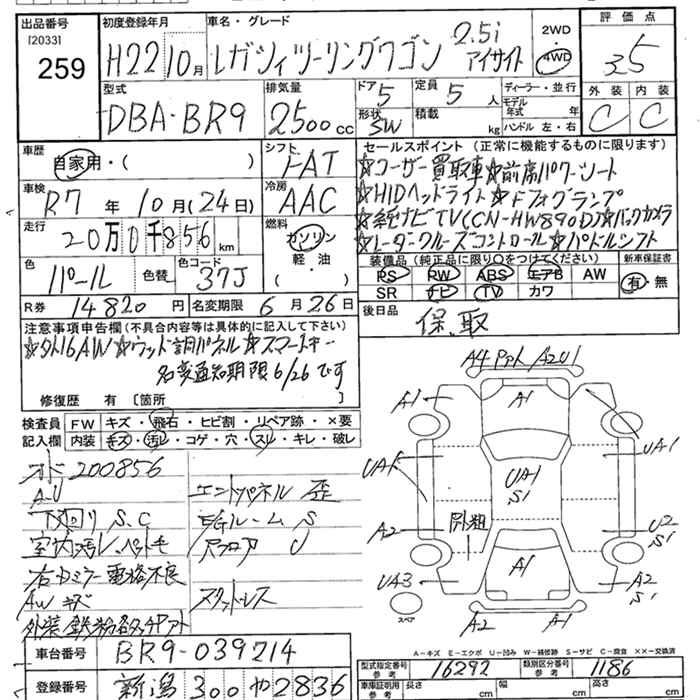 出品番号
[2033]
259
初度登録年月
H22 10月
車名・グレード
レガシィツーリングワゴン 2.5i アイサイト
2WD
4WD
評価点
3.5
外装 内装
C C
型式
DBA-BR9
排気量
2500 cc
ドア
5
形状
SW
定員
5 人
積載
kg
ディーラー・並行
モデル年式 年
ハンドル 左・右
車歴
自家用・( )
車検
R7 年 10月(24日)
走行
20万0千856 km
色
パール
色替
色コード
37J
R券 14820 円 名変期限 6月26日
シフト
FAT
冷房
AAC
燃料
ガソリン
軽油
・( )
セールスポイント(正常に機能するものに限ります)
☆ユーザー買取車☆前席パワーシート
☆HIDヘッドライト☆Fフォグランプ
☆社ナビTV(CN-HW890D)☆バックカメラ
☆レーダークルーズコントロール☆パドルシフト
装備品(純正品に限り○をつけてください)
PS PW ABS エアB AW
SR ナビ TV カワ
新車保証書
有・無
後日品
保、取
注意事項申告欄(不具合内容等は具体的に記入して下さい)
☆外16AW☆ウッド調パネル☆スマートキー
名変通知期限6/26です
修復歴 有〔箇所 〕
検査員記入欄
FW キズ・飛石・ヒビ割・リペア跡・×要
内装 キズ・汚レ・コゲ・穴・スレ・キレ・破レ
オド200856
A-U
下回り S.C
室内汚レ、ペット毛
右カミラー電格不良
AWキズ
エントパネル 歪
EGルーム S
Rフロア U
スタットレス
A4 PPK/A2U1
A1
A1
UA1
UA1
UA1
S1
A2
U2
S1
外粗
UA3
A1
A2
S1
A2
A1
スペア
A-キズ E-エクボ U-凹み W-補修跡 S-サビ C-腐食 ××-交換済
車台番号
BR9-039214
登録番号
新潟 300 や 2836
型式指定番号 参考
16292
類別区分番号 参考
1186
車庫証明用 参考
長さ cm
幅 cm
高さ cm